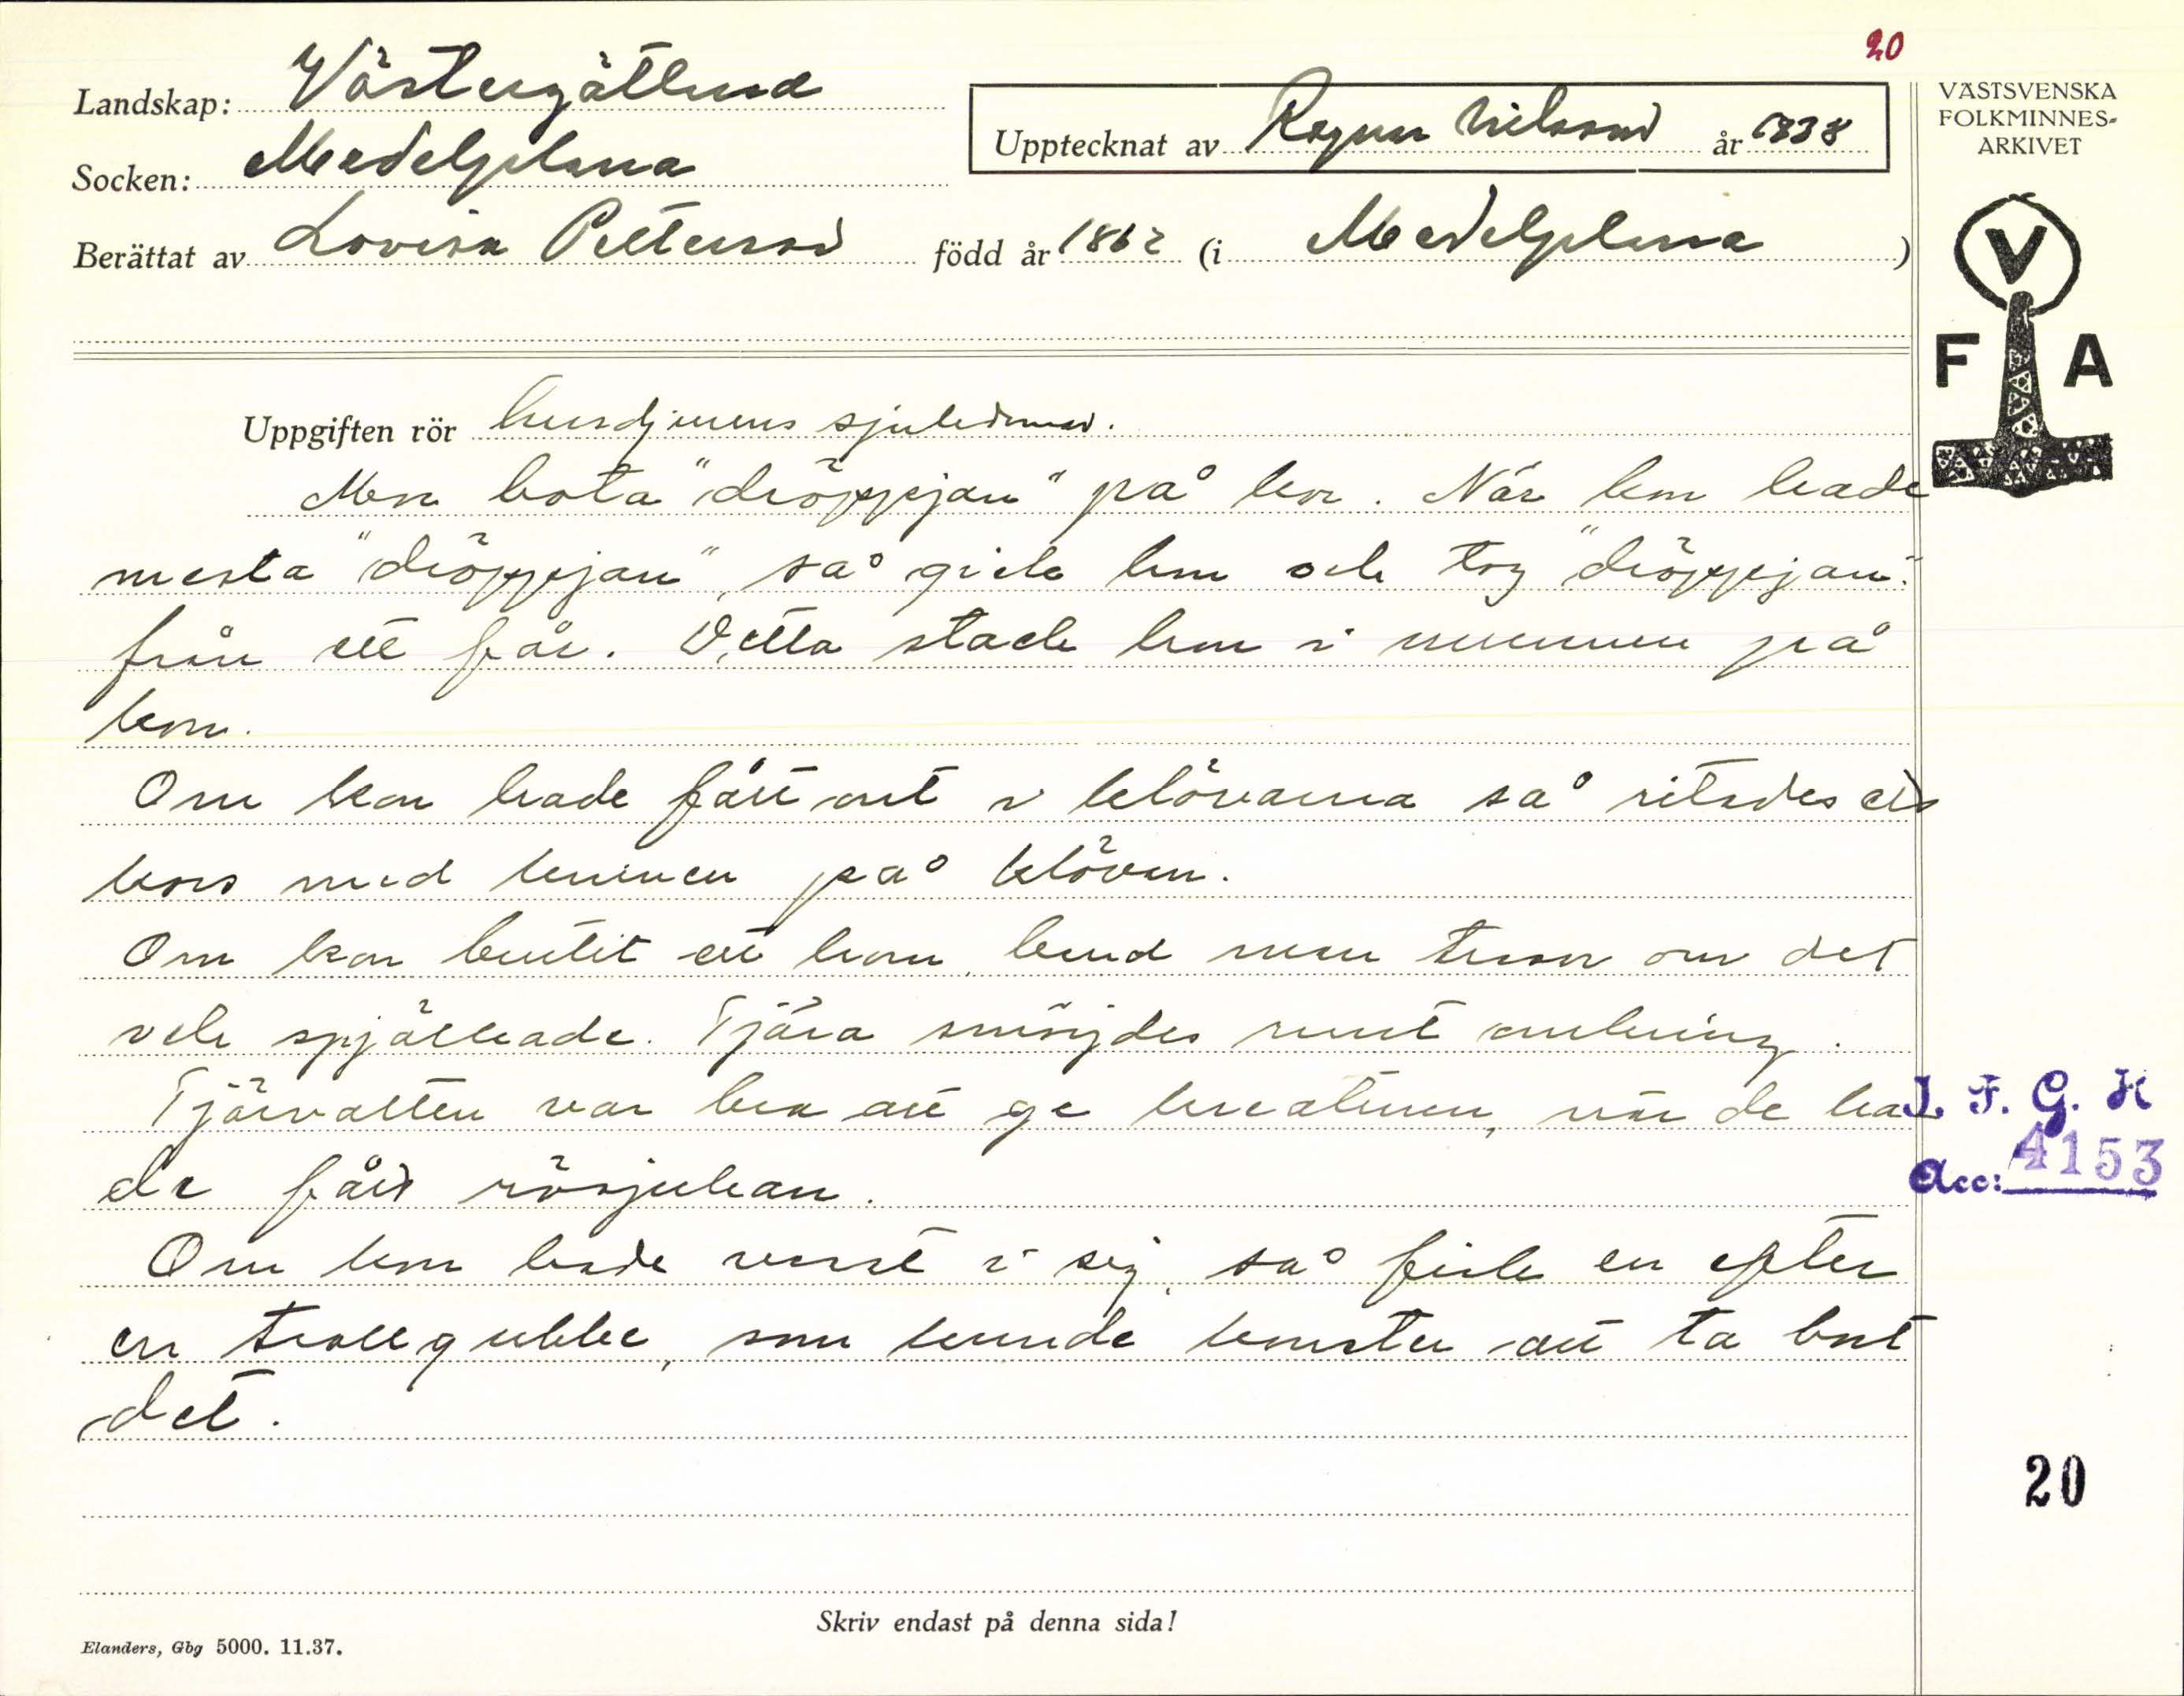 20
Landskap: Västergötland
Socken: Medelplana
Berättat av Lovisa Petterson född år 1862 (i Medelplana)
Upptecknat av Ragnar Nilsson år 1938
VÄSTSVENSKA
FOLKMINNES-
ARKIVET
V
F A
Uppgiften rör husdjurens sjukdomar.
Men bota "dröppjan" på kor. När kon hade
mesta "dröppjan", så gick hon och tog "dröppjan"
från ett får. Detta stack hon i munnen på
kon.
Om kon hade fått ont i klövarna så ritades ett
kors med kniven på klöven.
Om kon brutit ett horn, bund man trasor om det
och spjälkade. Tjära smörjdes runt omkring.
Tjärvatten var bra att ge kreaturen, när de ha
de fått rösjukan.
Om kon hade vrest i sig, så fick en efter
en trollgubbe, som kunde konster att ta bort
det.
I. F. G. H
Acc: 4153
20
Skriv endast på denna sida!
Elanders, Gbg 5000. 11.37.